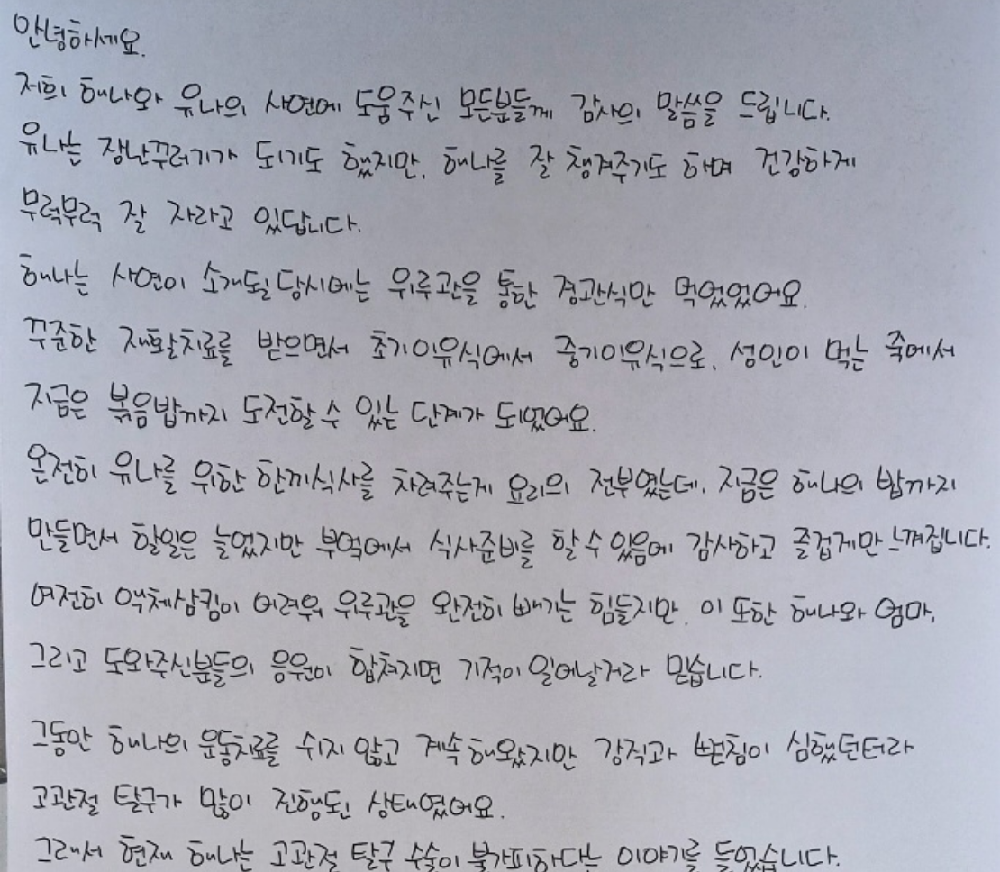 안녕하세요.
저희 해나와 유나의 사연에 도움주신 모든분들께 감사의 말씀을 드립니다.
유나는 장난꾸러기가 되기도 했지만, 해나를 잘 챙겨주기도 하며 건강하게
무럭무럭 잘 자라고 있답니다.
해나는 사연이 소개될 당시에는 위루관을 통한 경관식만 먹었었어요.
꾸준한 재활치료를 받으면서 초기이유식에서 중기이유식으로, 성인이 먹는 죽에서
지금은 볶음밥까지 도전할 수 있는 단계가 되었어요.
온전히 유나를 위한 한끼식사를 차려주는게 요리의 전부였는데, 지금은 해나의 밥까지
만들면서 할일은 늘었지만 부엌에서 식사준비를 할 수 있음에 감사하고 즐겁게만 느껴집니다.
여전히 액체삼킴이 어려워 위루관을 완전히 빼기는 힘들지만, 이 또한 해나와 엄마,
그리고 도와주신분들의 응원이 합쳐지면 기적이 일어날거라 믿습니다.
그동안 해나의 운동치료를 쉬지 않고 계속 해왔지만 강직과 뻗침이 심했던터라
고관절 탈구가 많이 진행된 상태였어요.
그래서 현재 해나는 고관절 탈구 수술이 불가피하다는 이야기를 들었습니다.